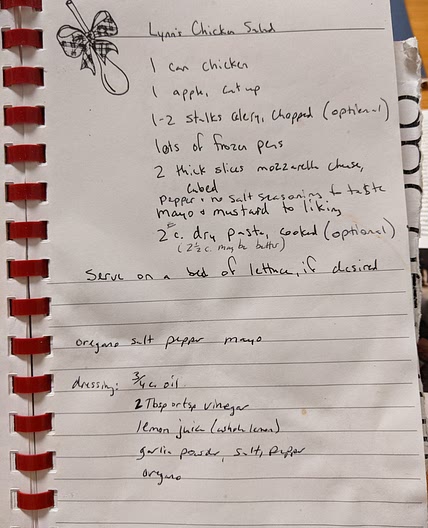 Lynn's Chicken Salad
1 can chicken
1 apple, cut up
1-2 stalks celery, chopped (optional)
lots of frozen peas
2 thick slices mozzarella cheese,
cubed
pepper + no salt seasoning to taste
mayo + mustard to liking
2 c. dry pasta, cooked (optional)
(2 ½ c. may be better)
Serve on a bed of lettuce, if desired
oregano salt pepper mayo
dressing: ¾ c. oil
2 Tbsp or tsp vinegar
lemon juice (whole lemon)
garlic powder, salt, pepper
oregano